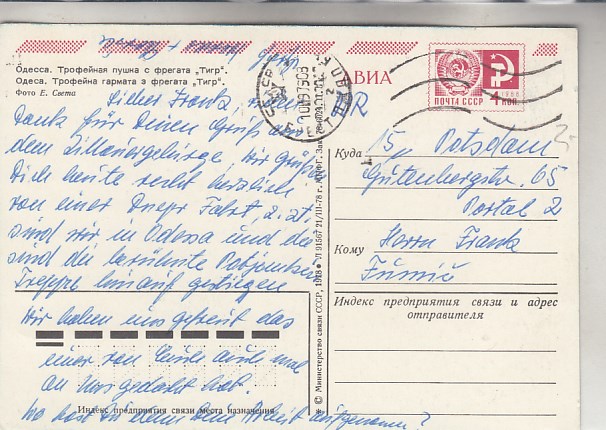 Одесса. Трофейная пушка с фрегата „Тигр“.
Одеса. Трофейна гармата з фрегата „Тигр“.
Фото Е. Света
АВИА
ПОЧТА СССР
4 КОП
1966
Lieber Frank,
Dank für Deinen Gruß aus
dem Zittauergebirge. Wir grüßen
Dich heute recht herzlich
von einer Dnepr Fahrt, z. Zt.
sind wir in Odessa und da
sind die berühmte Potjomken
Treppe hinauf gestiegen
Wir haben uns gefreut das
einer von Euch auch mal
an uns gedacht hat.
Wo hast du denn Arbeit aufgenommen?
Куда
15 Potsdam
Gutenbergstr. 65
Portal 2
Кому
Herrn Frank
Индекс предприятия связи и адрес
отправителя
Индекс предприятия связи места назначения
© Министерство связи СССР, 1978
Л 91567 21/III-78 г.